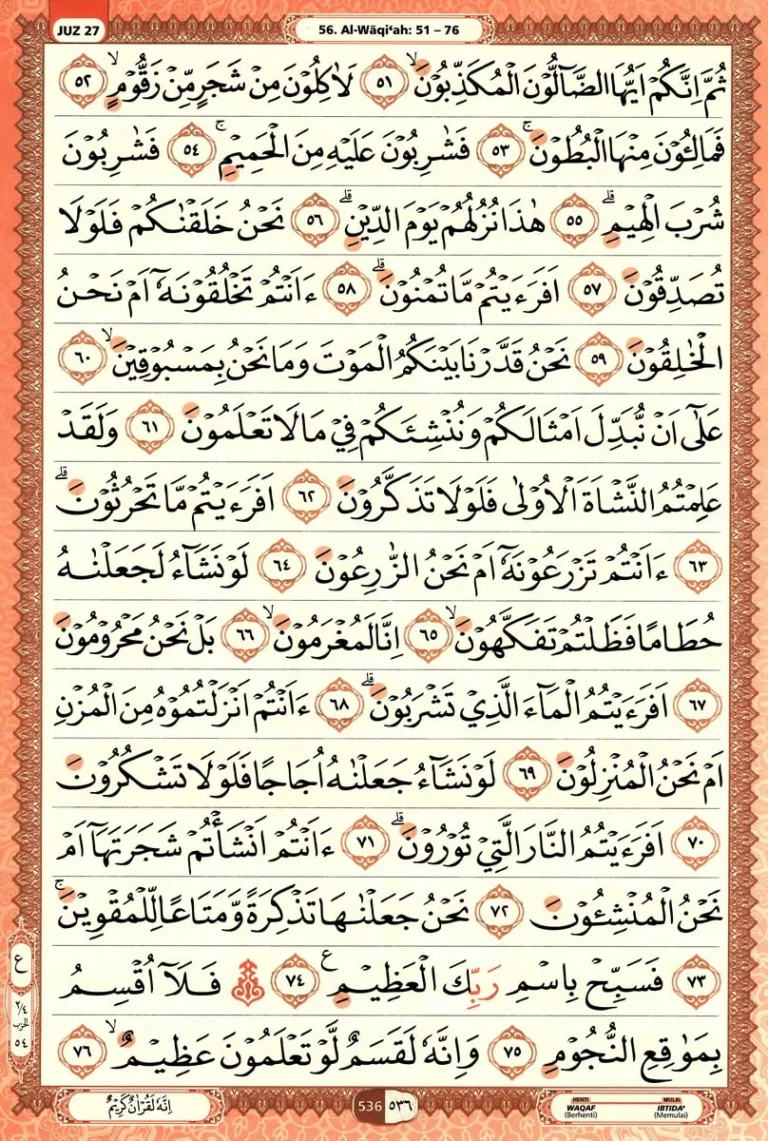 JUZ 27
56. Al-Wāqi‘ah: 51 – 76
ثُمَّ اِنَّكُمْ اَيُّهَا الضَّاۤلُّوْنَ الْمُكَذِّبُوْنَۙ ٥١ لَاٰكِلُوْنَ مِنْ شَجَرٍ مِّنْ زَقُّوْمٍۙ ٥٢
فَمَالِـُٔوْنَ مِنْهَا الْبُطُوْنَۚ ٥٣ فَشَارِبُوْنَ عَلَيْهِ مِنَ الْحَمِيْمِۚ ٥٤ فَشَارِبُوْنَ
شُرْبَ الْهِيْمِۗ ٥٥ هٰذَا نُزُلُهُمْ يَوْمَ الدِّيْنِۗ ٥٦ نَحْنُ خَلَقْنٰكُمْ فَلَوْلَا
تُصَدِّقُوْنَ ٥٧ اَفَرَءَيْتُمْ مَّا تُمْنُوْنَۗ ٥٨ ءَاَنْتُمْ تَخْلُقُوْنَهٗٓ اَمْ نَحْنُ
الْخٰلِقُوْنَ ٥٩ نَحْنُ قَدَّرْنَا بَيْنَكُمُ الْمَوْتَ وَمَا نَحْنُ بِمَسْبُوْقِيْنَۙ ٦٠
عَلٰٓى اَنْ نُّبَدِّلَ اَمْثَالَكُمْ وَنُنْشِئَكُمْ فِيْ مَا لَا تَعْلَمُوْنَ ٦١ وَلَقَدْ
عَلِمْتُمُ النَّشْاَةَ الْاُوْلٰى فَلَوْلَا تَذَكَّرُوْنَ ٦٢ اَفَرَءَيْتُمْ مَّا تَحْرُثُوْنَۗ
٦٣ ءَاَنْتُمْ تَزْرَعُوْنَهٗٓ اَمْ نَحْنُ الزّٰرِعُوْنَ ٦٤ لَوْ نَشَاۤءُ لَجَعَلْنٰهُ
حُطَامًا فَظَلْتُمْ تَفَكَّهُوْنَۙ ٦٥ اِنَّا لَمُغْرَمُوْنَۙ ٦٦ بَلْ نَحْنُ مَحْرُوْمُوْنَ
٦٧ اَفَرَءَيْتُمُ الْمَاۤءَ الَّذِيْ تَشْرَبُوْنَۗ ٦٨ ءَاَنْتُمْ اَنْزَلْتُمُوْهُ مِنَ الْمُزْنِ
اَمْ نَحْنُ الْمُنْزِلُوْنَ ٦٩ لَوْ نَشَاۤءُ جَعَلْنٰهُ اُجَاجًا فَلَوْلَا تَشْكُرُوْنَ
٧٠ اَفَرَءَيْتُمُ النَّارَ الَّتِيْ تُوْرُوْنَۗ ٧١ ءَاَنْتُمْ اَنْشَأْتُمْ شَجَرَتَهَآ اَمْ
نَحْنُ الْمُنْشِـُٔوْنَ ٧٢ نَحْنُ جَعَلْنٰهَا تَذْكِرَةً وَّمَتَاعًا لِّلْمُقْوِيْنَۚ
٧٣ فَسَبِّحْ بِاسْمِ رَبِّكَ الْعَظِيْمِ ع ٧٤ فَلَآ اُقْسِمُ
بِمَوٰقِعِ النُّجُوْمِ ٧٥ وَاِنَّهٗ لَقَسَمٌ لَّوْ تَعْلَمُوْنَ عَظِيْمٌۙ ٧٦
ع
٢/٤
الحزب
٥٤
اِنَّهٗ لَقُرْاٰنٌ كَرِيْمٌ
536 ٥٣٦
HENTI WAQAF (Berhenti)
MULAI IBTIDA' (Memulai)